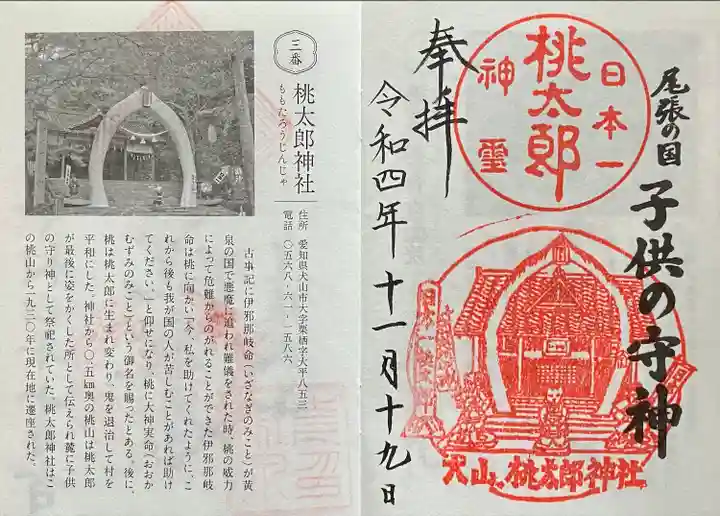 尾張の国
子供の守神
日本一
桃太郎
神霊
奉拝
令和四年十一月十九日
犬山桃太郎神社
三番
桃太郎神社
ももたろうじんじゃ
住所 愛知県犬山市大字栗栖字大平八五三
電話 〇五六八・六一・一五八六
古事記に伊邪那岐命(いざなぎのみこと)が黄
泉の国で悪魔に追われ難儀をされた時、桃の威力
によって危難からのがれることができた伊邪那岐
命は桃に向かい「今、私を助けてくれたように、こ
れから後も我が国の人が苦しむことがあれば助け
てください。」と仰せになり、桃に大神実命(おおか
むずみのみこと)という御名を賜ったとある。後に、
桃は桃太郎に生まれ変わり、鬼を退治して村を
平和にした。神社から〇・五km奥の桃山は桃太郎
が最後に姿をかくした所として伝えられ麓に子供
の守り神として祭祀されていた。桃太郎神社はこ
の桃山から一九三〇年に現在地に遷座された。